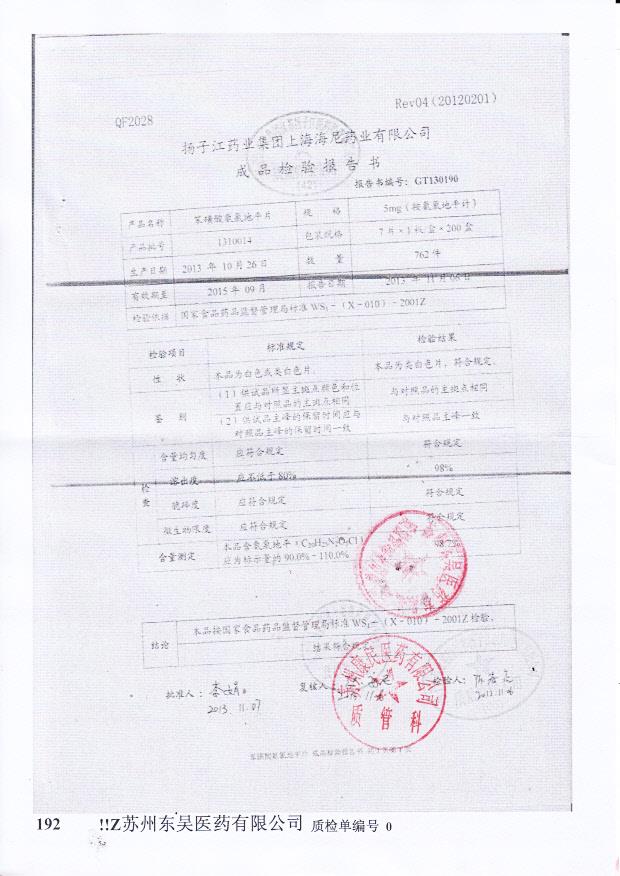 QF2028
Rev04(20120201)
扬子江药业集团上海海尼药业有限公司
成品检验报告书
报告书编号：GT130190
产品名称 苯磺酸氨氯地平片 规 格 5mg（按氨氯地平计）
产品批号 1310014 包装规格 7片×1板/盒×200盒
生产日期 2013 年 10月26日 数 量 762件
有效期至 2015年09月 报告日期 2013 年 11月08日
检验依据 国家食品药品监督管理局标准WS₁-（X-010）-2001Z
检验项目 标准规定 检验结果
性 状 本品为白色或类白色片。 本品为类白色片，符合规定。
鉴 别
（1）供试品所显主斑点颜色和位
置应与对照品的主斑点相同 与对照品的主斑点相同
（2）供试品主峰的保留时间应与
对照品主峰的保留时间一致 与对照品主峰一致
检查
含量均匀度 应符合规定 符合规定
溶出度 应不低于80% 98%
脆碎度 应符合规定 符合规定
微生物限度 应符合规定 符合规定
含量测定 本品含氨氯地平
应为标示量的90.0%-110.0%
结论 本品按国家食品药品监督管理局标准WS₁-（X-010）-2001Z检验，
结果符合规定
批准人： 复核人： 检验人：
2013.11.07 2013.11.06
医药有限公司
质管科
192 !!Z苏州东吴医药有限公司 质检单编号 0